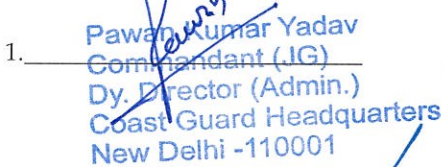 1. Pawan Kumar Yadav
Commandant (JG)
Dy. Director (Admin.)
Coast Guard Headquarters
New Delhi -110001